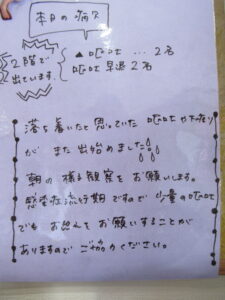 本日の病欠
2階で
出ています。
▲ 嘔吐 … 2名
嘔吐早退 2名
落ち着いたと思っていた 嘔吐や下痢
が また出始めました
朝の様子観察を お願いします。
感染症流行期ですので 少量の嘔吐
でも お迎えを お願いすることが
ありますので ご協力ください。